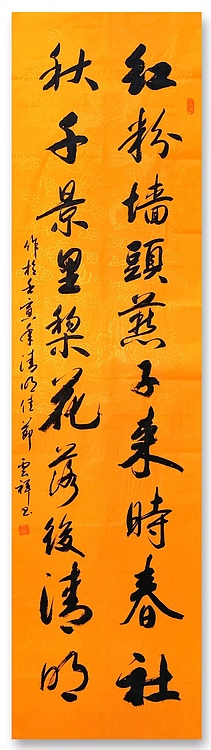 红粉墙頭燕子来時春社
秋千景里梨花落後清明
作於壬寅年清明佳節 雲祥书